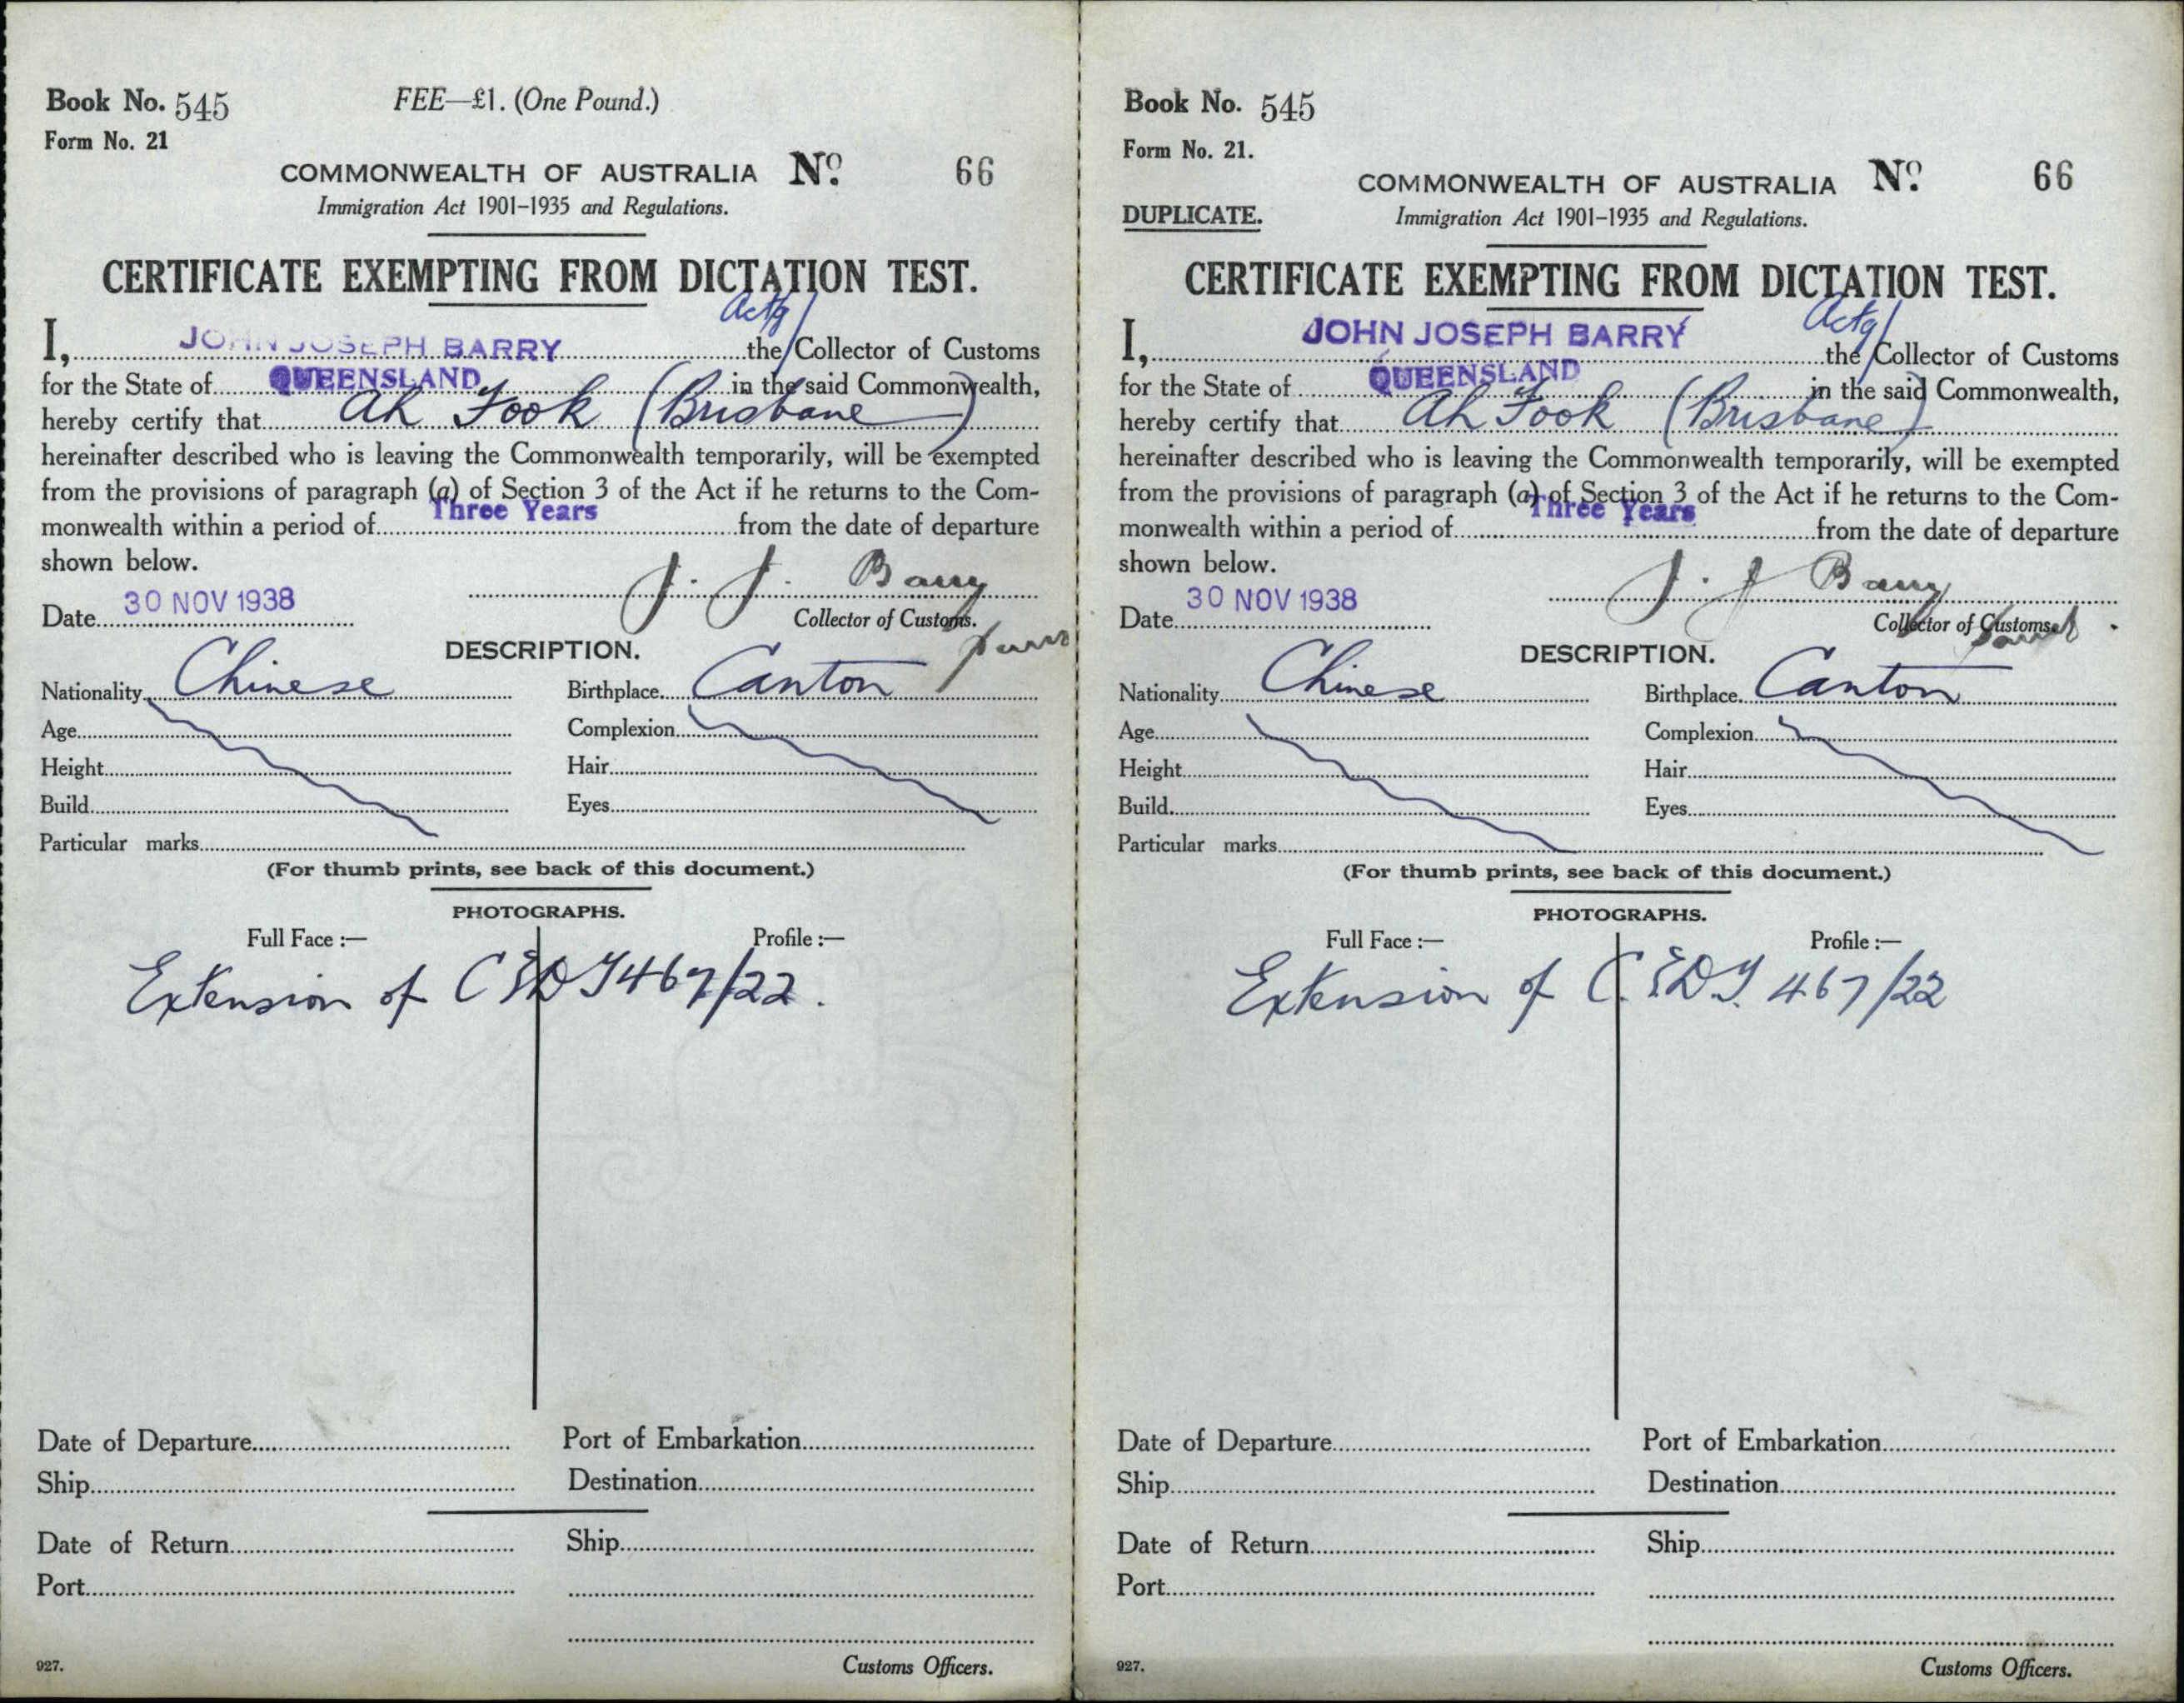 Book No. 545
FEE—£1. (One Pound.)
Form No. 21
COMMONWEALTH OF AUSTRALIA No. 66
Immigration Act 1901–1935 and Regulations.
CERTIFICATE EXEMPTING FROM DICTATION TEST.
Actg/
I, JOHN JOSEPH BARRY the/Collector of Customs
for the State of QUEENSLAND in the said Commonwealth,
hereby certify that Ah Fook (Brisbane)
hereinafter described who is leaving the Commonwealth temporarily, will be exempted
from the provisions of paragraph (a) of Section 3 of the Act if he returns to the Com-
monwealth within a period of Three Years from the date of departure
shown below.
J. J. Barry
Date 30 NOV 1938
Collector of Customs.
DESCRIPTION.
Nationality Chinese Birthplace Canton
Age Complexion
Height Hair
Build Eyes
Particular marks
(For thumb prints, see back of this document.)
PHOTOGRAPHS.
Full Face :— Profile :—
Extension of C.E.D.T. 467/22.
Date of Departure Port of Embarkation
Ship Destination
Date of Return Ship
Port
927. Customs Officers.
Book No. 545
Form No. 21.
COMMONWEALTH OF AUSTRALIA No. 66
DUPLICATE. Immigration Act 1901–1935 and Regulations.
CERTIFICATE EXEMPTING FROM DICTATION TEST.
Actg/
I, JOHN JOSEPH BARRY the/Collector of Customs
for the State of QUEENSLAND in the said Commonwealth,
hereby certify that Ah Fook (Brisbane)
hereinafter described who is leaving the Commonwealth temporarily, will be exempted
from the provisions of paragraph (a) of Section 3 of the Act if he returns to the Com-
monwealth within a period of Three Years from the date of departure
shown below.
J. J. Barry
Date 30 NOV 1938
Collector of Customs.
DESCRIPTION.
Nationality Chinese Birthplace Canton
Age Complexion
Height Hair
Build Eyes
Particular marks
(For thumb prints, see back of this document.)
PHOTOGRAPHS.
Full Face :— Profile :—
Extension of C.E.D.T. 467/22
Date of Departure Port of Embarkation
Ship Destination
Date of Return Ship
Port
927. Customs Officers.